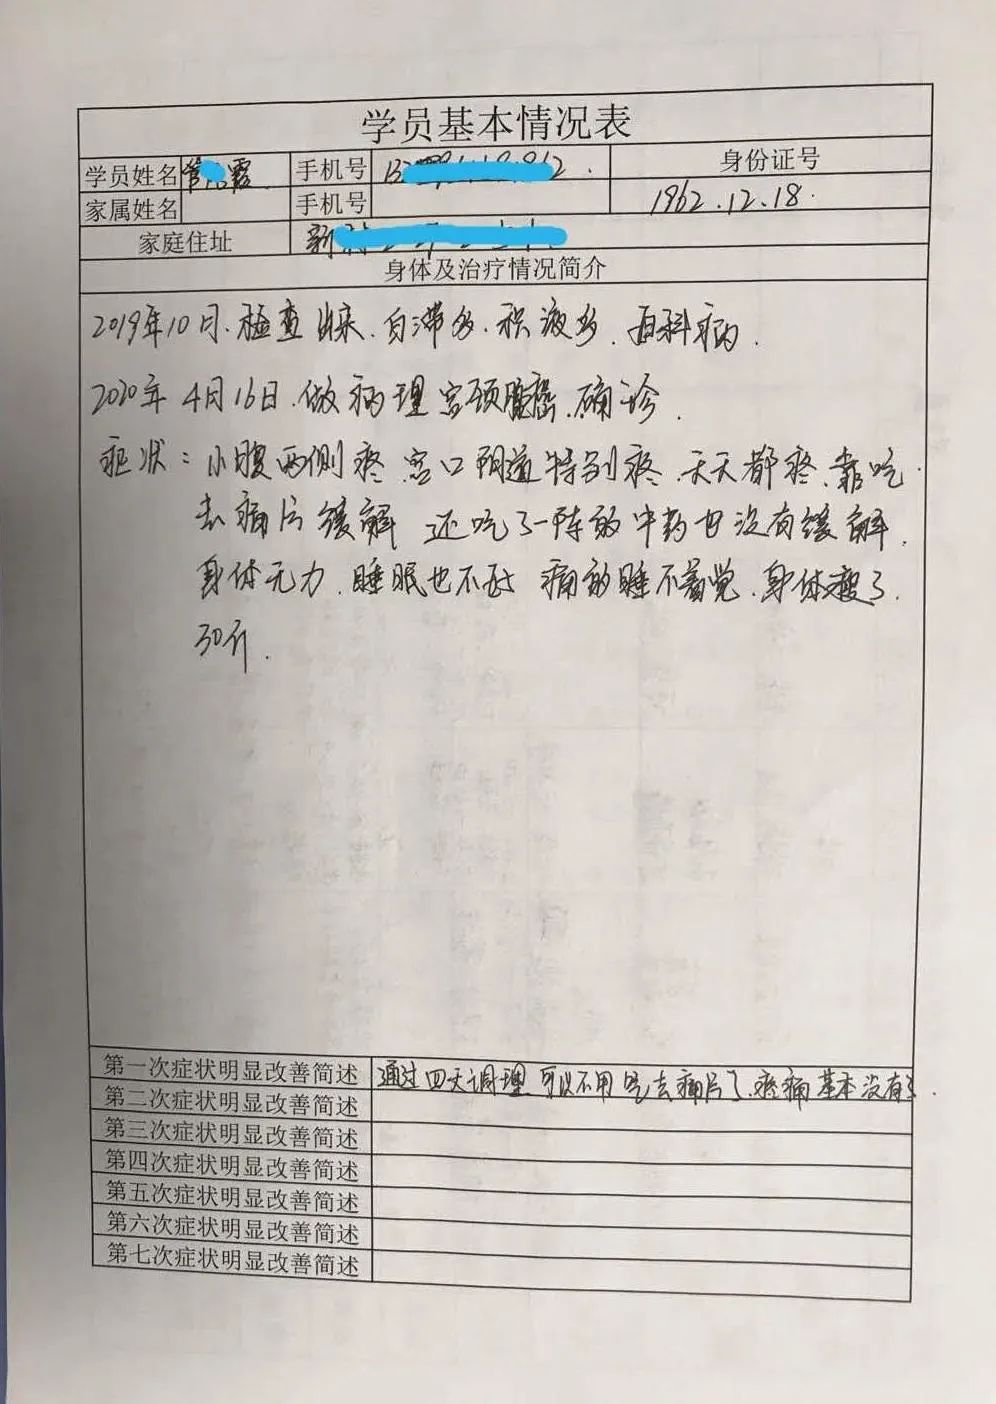 学员基本情况表
学员姓名 霞 手机号 身份证号
家属姓名 手机号 1962.12.18.
家庭住址 新
身体及治疗情况简介
2019年10月.检查出来.白滞多.积液多.百科病.
2020年4月16日.做病理宫颈腺癌.确诊.
症状：小腹两侧疼.宫口阴道特别疼.天天都疼.靠吃
去痛片缓解 还吃了一阵的中药也没有缓解.
身体无力.睡眠也不好 痛的睡不着觉.身体瘦了
30斤.
第一次症状明显改善简述 通过四天调理 可以不用吃去痛片了.疼痛基本没有了.
第二次症状明显改善简述
第三次症状明显改善简述
第四次症状明显改善简述
第五次症状明显改善简述
第六次症状明显改善简述
第七次症状明显改善简述